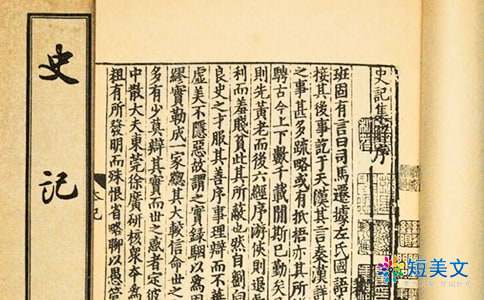 史記
史記集解序
班固有言曰司馬遷據左氏國語
接其後事訖于天漢其言秦漢詳
之事甚多疏略或有抵梧亦其所
騁古今上下數千載間斯已勤矣
則先黃老而後六經序游俠則退處
利而羞賤貧此其所蔽也然自劉向
良史之才服其善序事理辯而不華
虛美不隱惡故謂之實錄駰以為固
繆實勒成一家總其大較信命世之
多有少真辯其實而世之惑者定彼
中散大夫東莞徐廣研核衆本為
粗有所發明而殊恨省略聊以愚管
短美文